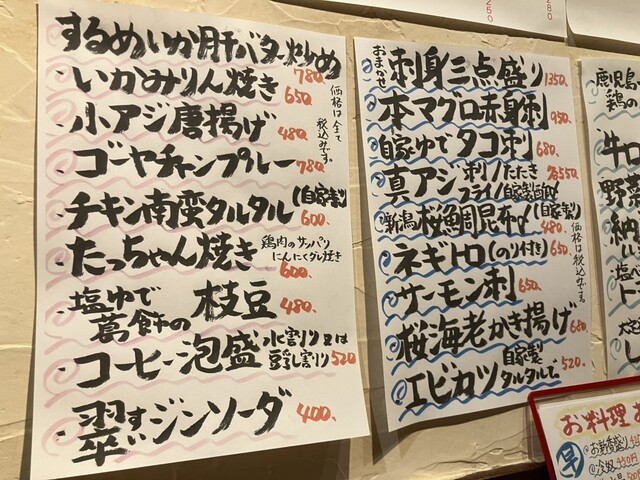 するめいか肝バター炒め 780.
・いかみりん焼き 650
・小アジ唐揚げ 480.
・ゴーヤチャンプルー 780.
・チキン南蛮タルタル(自家製) 600.
・たっちゃん焼き 鶏肉のサッパリ
にんにくダレ焼き
600.
・塩ゆで
葛飾の 枝豆 480.
・コーヒー泡盛 水割り又は
豆乳割り 520
ジンソーダ 400.
価格は全て
税込みです。
おまかせ 刺身三点盛り 1350.
本マグロ赤身刺 950.
自家ゆでタコ刺 680.
真アジ 刺/たたき 各550.
フライ/自家製
新潟桜鯛昆布〆(自家製)
480.
ネギトロ(のり付き) 650.
サーモン刺 650.
桜海老かき揚げ 680
エビカツ 自家製
タルタルで 520.
価格は税込みです。
鹿児島
鶏の
牛
野菜
納
塩
お料理
早
お新香盛り
冷奴 450円
250
280